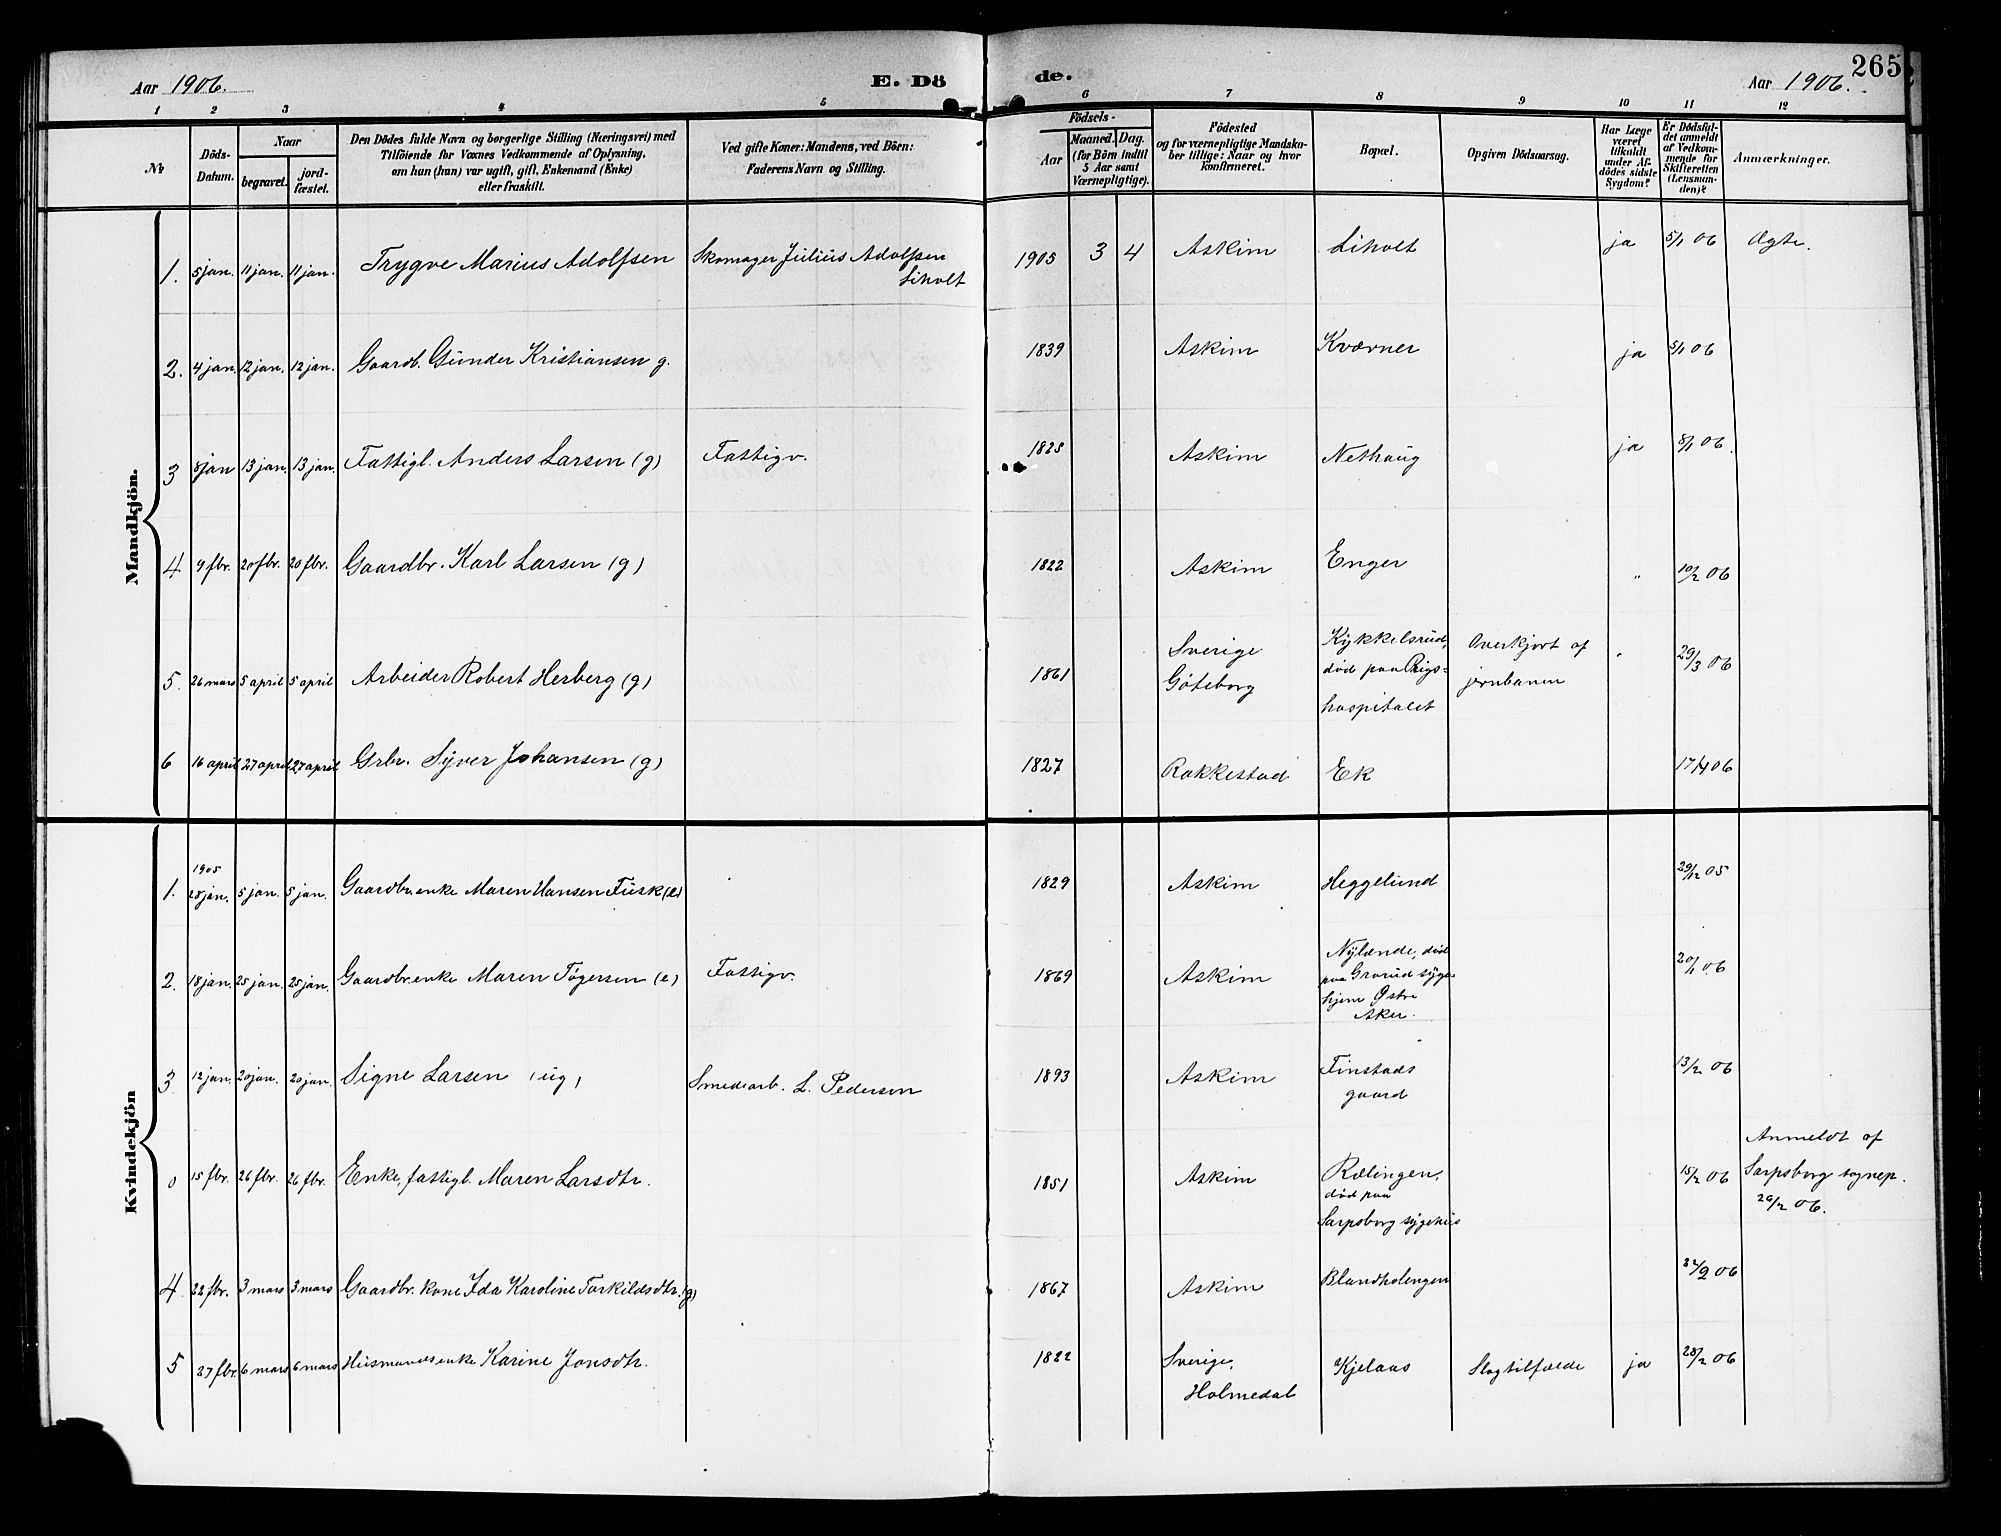 265
Aar 1906. E. Dö de. Aar 1906.
1 2 3 4 5 6 7 8 9 10 11 12
No
Döds-Datum.
Naar
begravet.
jord-fæstet.
Den Dödes fulde Navn og borgerlige Stilling (Næringsvei) med
Tilföiende for Voxnes Vedkommende af Oplysning,
om han (hun) var ugift, gift, Enkemand (Enke)
eller fraskilt.
Ved gifte Koner: Mandens, ved Börn:
Faderens Navn og Stilling.
Födsels-
Aar
Maaned. Dag.
(for Börn indtil
5 Aar samt
Værnepligtige).
Födested
og for værnepligtige Mandska-
ber tillige: Naar og hvor
konfirmeret.
Bopæl.
Opgiven Dödsaarsag.
Har Læge
været
tilkaldt
under Af-
dödes sidste
Sygdom?
Er Dödsfal-
det anmeldt
af Vedkom-
mende for
Skifteretten
(Lensman-
den)?
Anmærkninger.
Mandkjön.
1. 5 jan. 11 jan. 11 jan. Trygve Marius Adolfsen Skomager Julius Adolfsen Liholt 1905 3 4 Askim Liholt ja 5/1 06 Ægte.
2. 4 jan. 12 jan. 12 jan. Gaardb. Gunder Kristiansen g. 1839 Askim Kværner ja 5/1 06
3 8 jan 13 jan. 13 jan. Fattigl. Anders Larsen (g) Fattigv. 1825 Askim Nethaug ja 8/1 06.
4 9 fbr. 20 fbr. 20 fbr. Gaardbr. Karl Larsen (g) 1822 Askim Enger " 10/2 06
5. 26 mars 5 april 5 april Arbeider Robert Herberg (g) 1861 Sverige Göteborg Kykkelsrud, död paa Rigs=hospitalet Overkjørt af jernbanen " 29/3 06
6 16 april 27 april 27 april Grbr. Syver Johansen (g) 1827 Rakkestad Ek 17/4 06
Kvindekjön
1. 1905 28 jan. 5 jan. 5 jan. Gaardbr. enke Maren Hansen Fusk (e) 1829 Askim Heggelund 29/12 05
2. 18 jan. 25 jan. 25 jan. Gaardbr. enke Maren Tøgersen (e) Fattigv. 1869 Askim Nylænde, död paa Grorud sygehjem Østre Aker. 20/1 06
3 12 jan. 20 jan. 20 jan. Signe Larsen (ug) Smedearb. L. Pedersen 1893 Askim Finstadsgaard 13/2 06
0 15 fbr. 26 fbr. 26 fbr. Enke, fattigl. Maren Larsdtr. 1851 Askim Rælingen, död paa Sarpsborg sygehus 15/2 06 Anmeldt af Sarpsborg sognep. 26/2 06.
4 22 fbr. 3 mars 3 mars Gaardbr. kone Ida Karoline Torkildsdtr. (g) 1867 Askim Blandholengen 22/2 06
5 27 fbr. 6 mars 6 mars Husmands enke Karine Jonsdtr. 1822 Sverige, Holmedal Kjelaas Slagtilfælde ja 28/2 06